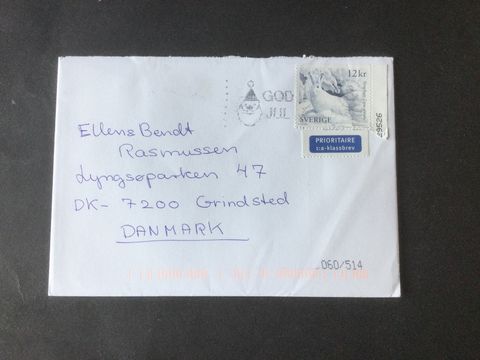 GOD
JUL
12 kr
SVERIGE
PRIORITAIRE
1:a-klassbrev
Ellens Bendt
Rasmussen
Lyngsøparken 47
DK- 7200 Grindsted
DANMARK
060/514